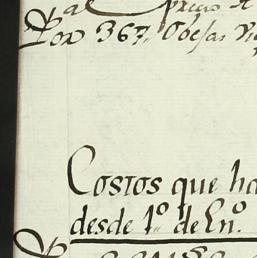 al Precio de
Por 367,, Obejas Vi
Costos que ha
desde 1º,, de En.º